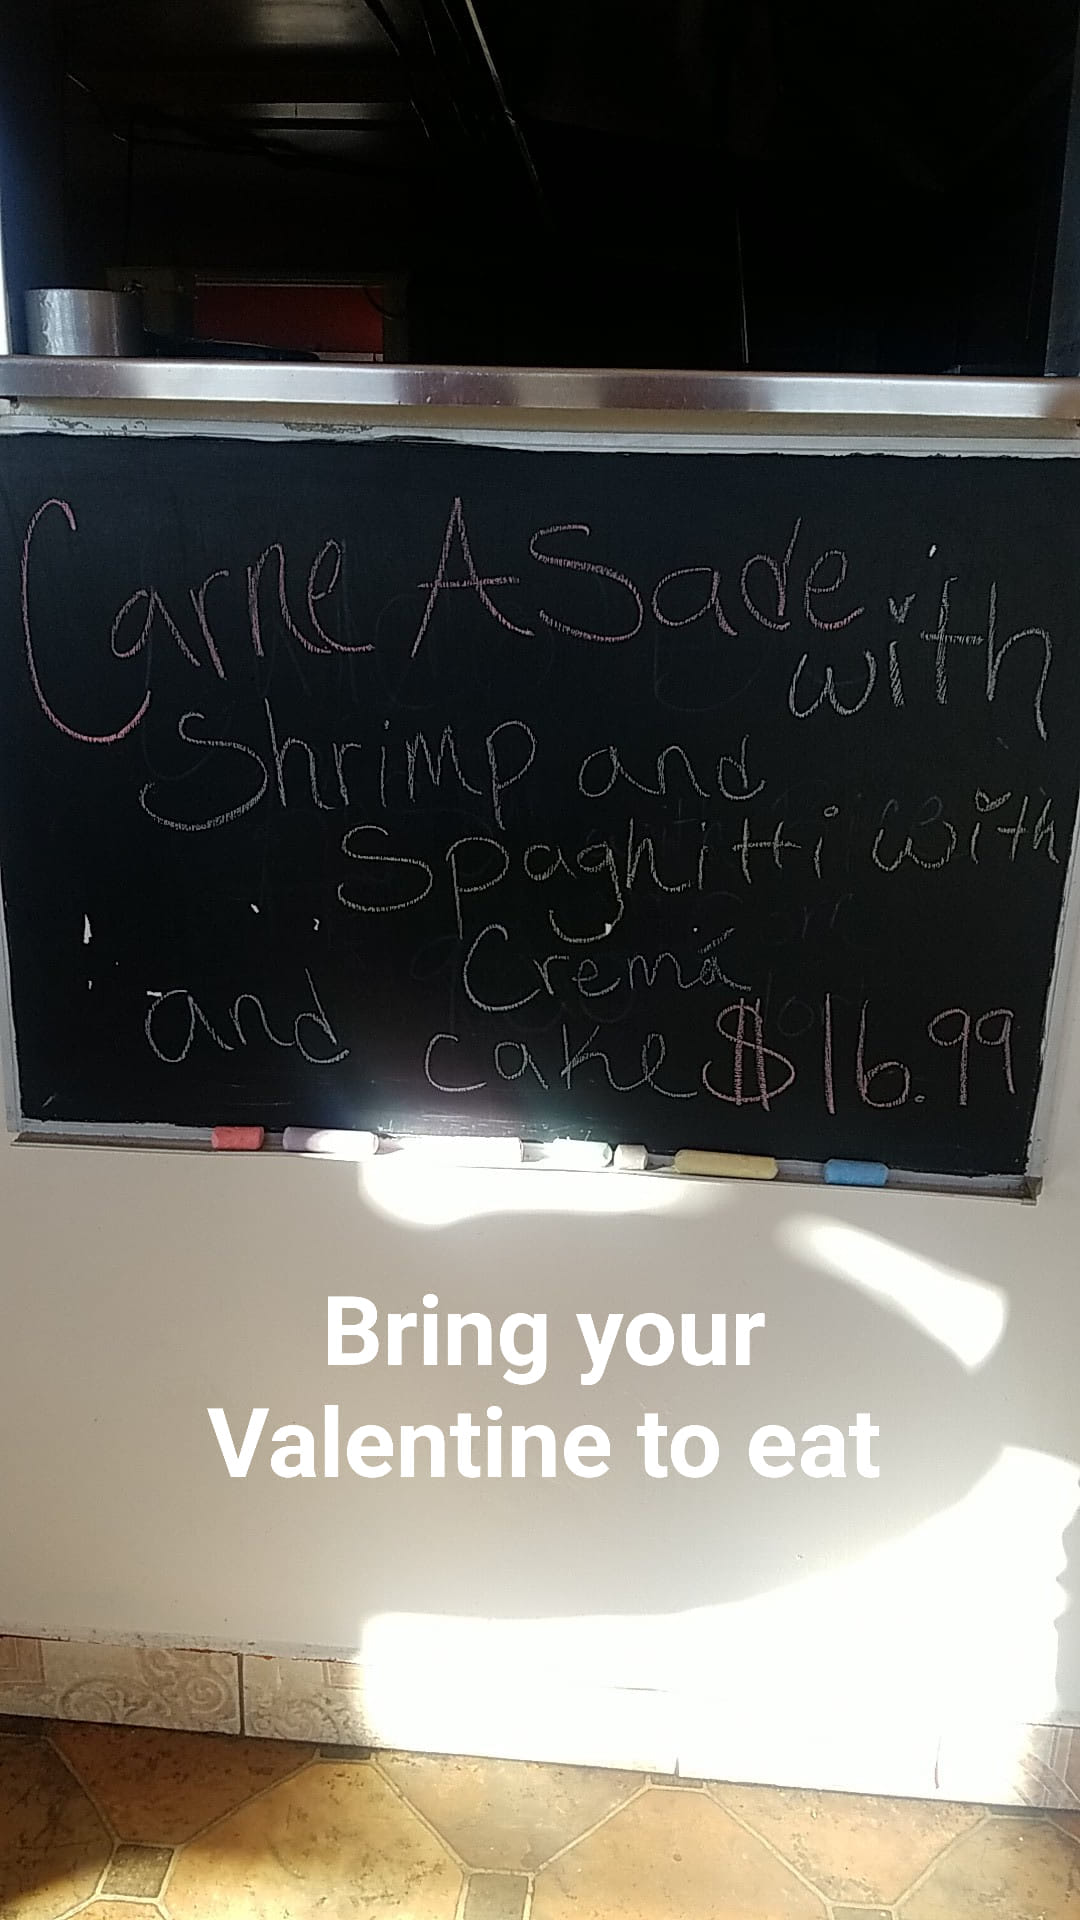 Carne ASade with
Shrimp and
Spaghitti with
Crema
and cake $16.99
Bring your
Valentine to eat